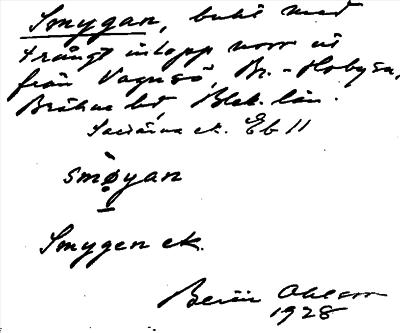 Smygan, bukt med
trångt inlopp norr ut
från Vagnsö, Br.-Hoby sn,
Bräkne hd, Blek. län.
ek. Eb 11
smøyan
Smygen ek.
Ohlsson
1928